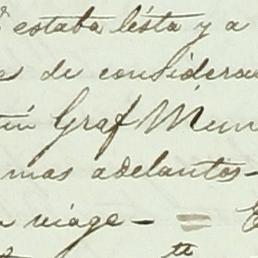 estaba lista y a
de considera
Graf Mün
mas adelantos-
viage - =
te